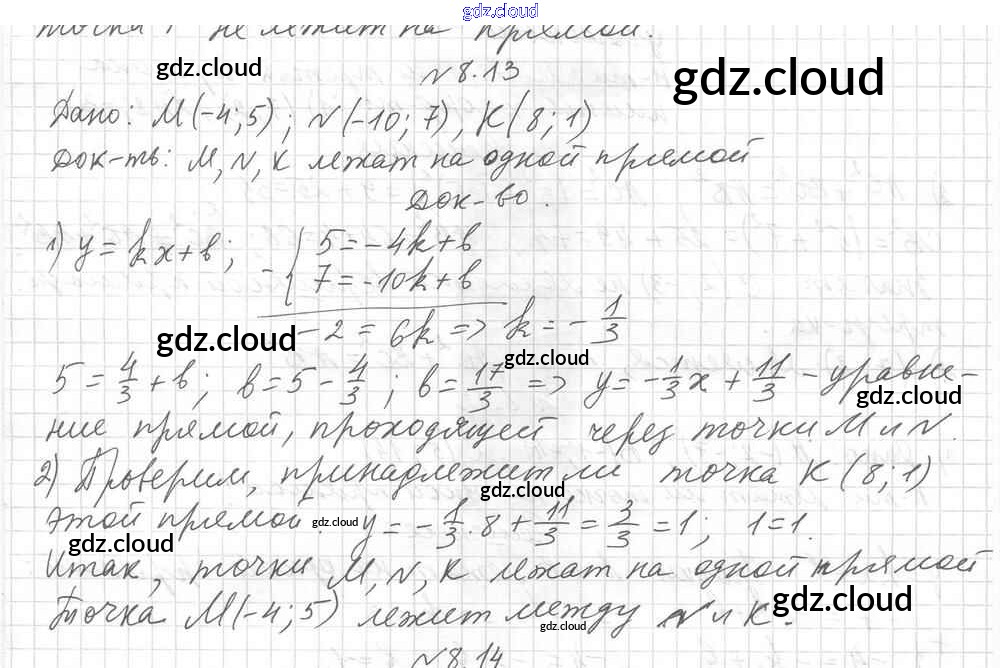 gdz.cloud
точка не лежит на прямой.
gdz.cloud
N 8.13
gdz.cloud
Дано: M(-4; 5); N(-10; 7), K(8; 1)
Док-ть: M, N, K лежат на одной прямой
Док-во.
1) y = kx + b; - { 5 = -4k + b
7 = -10k + b
gdz.cloud
-2 = 6k => k = -1/3
gdz.cloud
5 = 4/3 + b; b = 5 - 4/3; b = 17/3 => y = -1/3 x + 11/3 - уравне-
gdz.cloud
ние прямой, проходящей через точки M и N.
2) Проверим, принадлежит ли точка K(8; 1)
gdz.cloud
этой прямой: gdz.cloud y = -1/3 · 8 + 11/3 = 3/3 = 1; 1 = 1.
gdz.cloud
Итак, точки M, N, K лежат на одной прямой
gdz.cloud
Точка M(-4; 5) лежит между N и K.
gdz.cloud
N 8.14